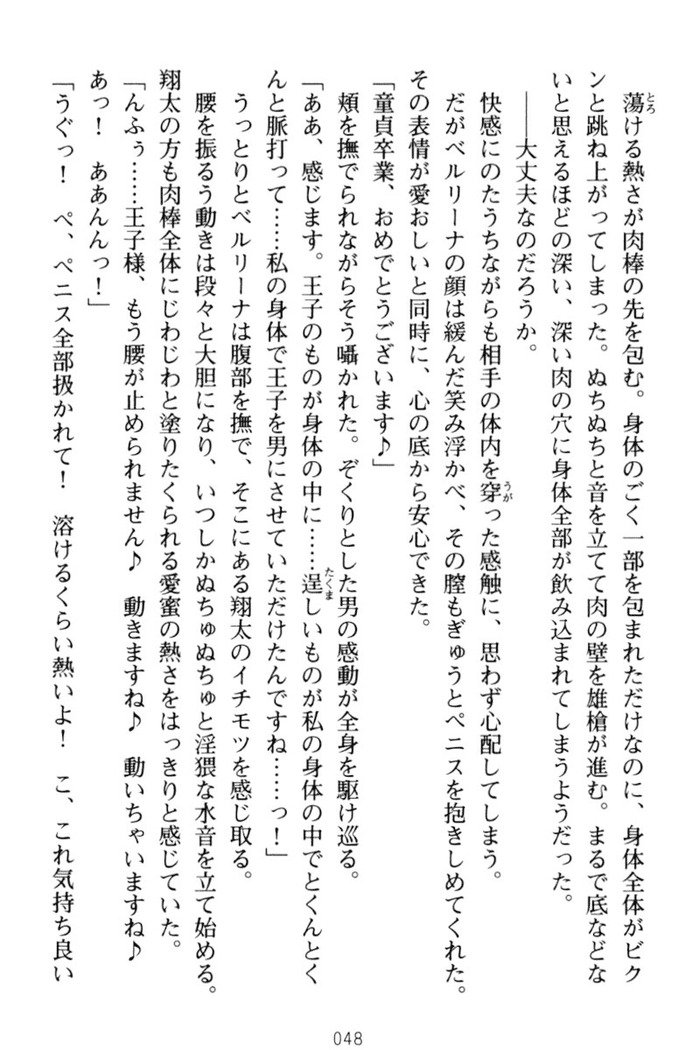 蕩ける熱さが肉棒の先を包む。身体のごく一部を包まれただけなのに、身体全体がビク
ンと跳ね上がってしまった。ぬちぬちと音を立てて肉の壁を雄槍が進む。まるで底などな
いと思えるほどの深い、深い肉の穴に身体全部が飲み込まれてしまうようだった。
――大丈夫なのだろうか。
快感にのたうちながらも相手の体内を穿った感触に、思わず心配してしまう。
だがベルリーナの顔は緩んだ笑み浮かべ、その膣もぎゅうとペニスを抱きしめてくれた。
その表情が愛おしいと同時に、心の底から安心できた。
「童貞卒業、おめでとうございます♪」
頬を撫でられながらそう囁かれた。ぞくりとした男の感動が全身を駆け巡る。
「ああ、感じます。王子のものが身体の中に……逞しいものが私の身体の中でとくんとく
んと脈打って……私の身体で王子を男にさせていただけたんですね……っ！」
うっとりとベルリーナは腹部を撫で、そこにある翔太のイチモツを感じ取る。
腰を振るう動きは段々と大胆になり、いつしかぬちゅぬちゅと淫猥な水音を立て始める。
翔太の方も肉棒全体にじわじわと塗りたくられる愛蜜の熱さをはっきりと感じていた。
「んふぅ……王子様、もう腰が止められません♪　動きますね♪　動いちゃいますね♪
あっ！　ああんんっ！」
「うぐっ！　ぺ、ペニス全部扱かれて！　溶けるくらい熱いよ！　こ、これ気持ち良い
048